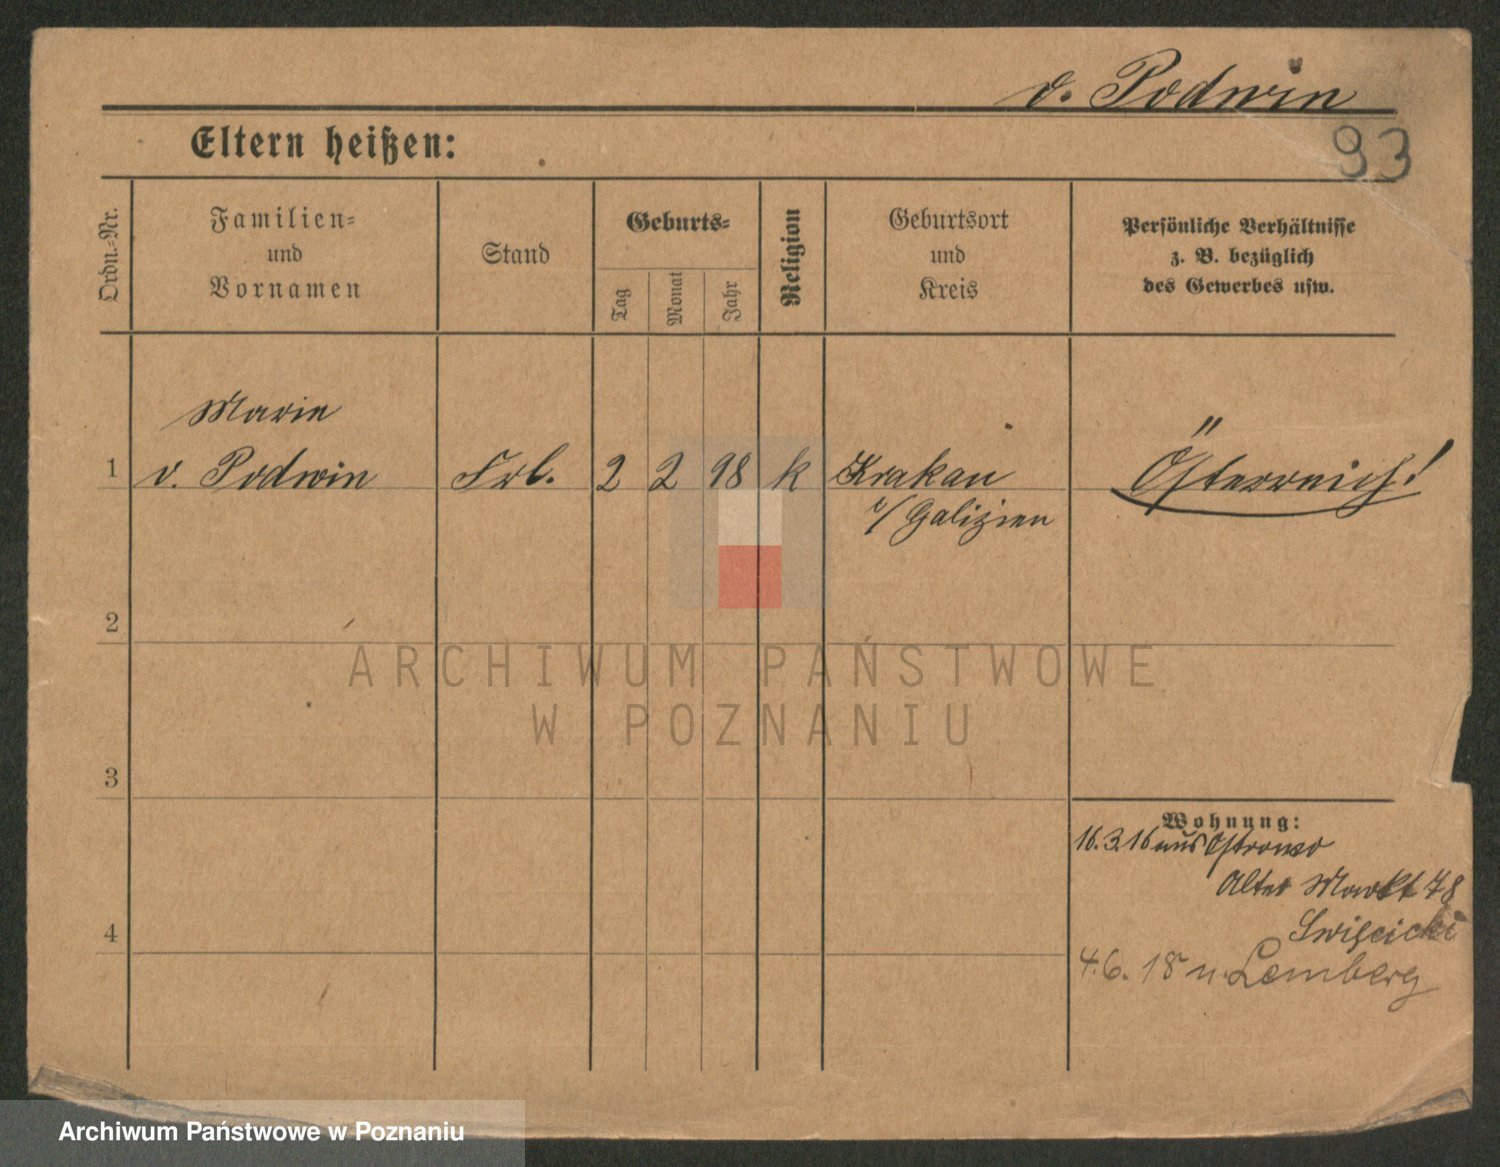 v. Podwin
93
Eltern heißen:
Ordn.=Nr.
Familien=
und
Vornamen
Stand
Geburts=
Tag
Monat
Jahr
Religion
Geburtsort
und
Kreis
Persönliche Verhältnisse
z. B. bezüglich
des Gewerbes usw.
Marie
1 v. Podwin Frl. 2 2 98 k Krakau Österreich!
i/ Galizien
2
ARCHIWUM PAŃSTWOWE
W POZNANIU
3
Wohnung:
16.3.16 aus Ostrowo
Alter Markt 78
Swięcicki
4
4.6.18 n. Lemberg
Archiwum Państwowe w Poznaniu